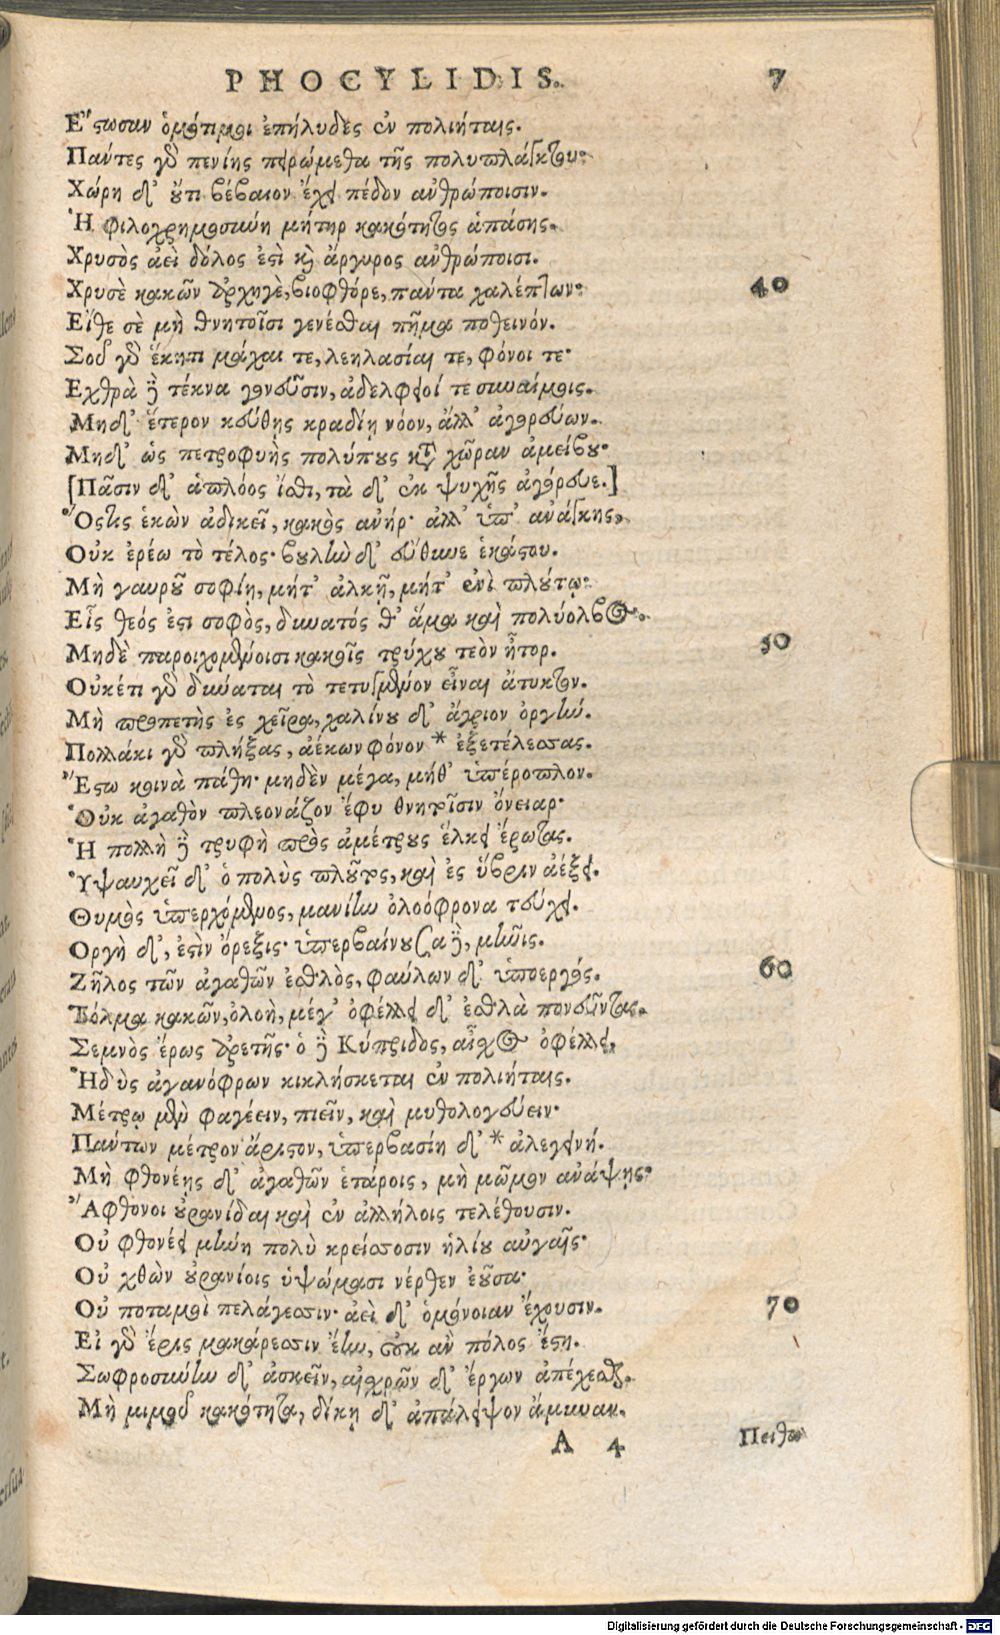 PHOCYLIDIS. 7
Ἔστωσαν ὁμότιμοι ἐπήλυδες ἐν πολιήταις.
Πάντες γὰρ πενίης πειρώμεθα τῆς πολυπλάγκτου·
Χώρη δ' οὔτι βέβαιον ἔχει πέδον ἀνθρώποισιν.
Ἡ φιλοχρημοσύνη μήτηρ κακότητος ἁπάσης.
Χρυσὸς ἀεὶ δόλος ἐστὶ καὶ ἄργυρος ἀνθρώποισι.
Χρυσὲ κακῶν ἀρχηγὲ, βιοφθόρε, πάντα χαλέπτων· 40
Εἴθε σὲ μὴ θνητοῖσι γενέσθαι πῆμα ποθεινόν.
Σοῦ γὰρ ἕκητι μάχαι τε, λεηλασίαι τε, φόνοι τε·
Εχθρὰ δὲ τέκνα γονεῦσιν, ἀδελφειοί τε συναίμοις.
Μηδ' ἕτερον κεύθῃς κραδίῃ νόον, ἄλλ' ἀγορεύων.
Μηδ' ὡς πετροφυὴς πολύπους κατὰ χῶραν ἀμείβου·
[Πᾶσιν δ' ἁπλόος ἴσθι, τὰ δ' ἐκ ψυχῆς ἀγόρευε.]
Ὅστις ἑκὼν ἀδικεῖ, κακὸς ἀνήρ· ἀλλ' ὑπ' ἀνάγκης,
Οὐκ ἐρέω τὸ τέλος· βουλὴν δ' εὔθυνε ἑκάστου.
Μὴ γαυροῦ σοφίῃ, μήτ' ἀλκῇ, μήτ' ἐνὶ πλούτῳ·
Εἷς θεός ἐστι σοφὸς, δυνατός θ' ἅμα καὶ πολύολβος.
Μηδὲ παροιχομένοισι κακοῖς τρύχου τεὸν ἦτορ. 50
Οὐκέτι γὰρ δύναται τὸ τετυγμένον εἶναι ἄτυκτον.
Μὴ προπετὴς ἐς χεῖρα, χαλίνου δ' ἄγριον ὀργήν.
Πολλάκι γὰρ πλήξας, ἀέκων φόνον * ἐξετέλεσσας.
Ἔστω κοινὰ πάθη· μηδὲν μέγα, μήθ' ὑπέροπλον.
Οὐκ ἀγαθὸν πλεονάζον ἔφυ θνητοῖσιν ὄνειαρ·
Ἡ πολλὴ δὲ τρυφὴ πρὸς ἀμέτρους ἕλκει ἔρωτας.
Ὑψαυχεῖ δ' ὁ πολὺς πλοῦτος, καὶ ἐς ὕβριν ἀέξει.
Θυμὸς ὑπερχόμενος, μανίην ὀλοόφρονα τεύχει.
Οργὴ δ', ἐστὶν ὄρεξις· ὑπερβαίνουσα δὲ, μῆνις.
Ζῆλος τῶν ἀγαθῶν ἐσθλὸς, φαύλων δ' ὑπόεργός. 60
Τόλμα κακῶν, ὀλοὴ, μέγ' ὀφέλλει δ' ἐσθλὰ πονεῦντας.
Σεμνὸς ἔρως ἀρετῆς· ὁ δὲ Κύπριδος, αἶσχος ὀφέλλει.
Ἡδὺς ἀγανόφρων κικλήσκεται ἐν πολιήταις.
Μέτρῳ μὲν φαγέειν, πιεῖν, καὶ μυθολογεύειν·
Πάντων μέτρον ἄριστον, ὑπερβασίη δ' * ἀλεγεινή.
Μὴ φθονέῃς δ' ἀγαθῶν ἑτάροις, μὴ μῶμον ἀνάψῃς·
Ἄφθονοι οὐρανίδαι καὶ ἐν ἀλλήλοις τελέθουσιν.
Οὐ φθονέει μήνη πολὺ κρείσσοσιν ἡλίου αὐγαῖς·
Οὐ χθὼν οὐρανίοις ὑψώμασι νέρθεν ἐοῦσα·
Οὐ ποταμοὶ πελάγεσσιν· ἀεὶ δ' ὁμόνοιαν ἔχουσιν. 70
Εἰ γὰρ ἔρις μακάρεσσιν ἔην, οὐκ ἂν πόλος ἔστη.
Σωφροσύνην δ' ἀσκεῖν, αἰσχρῶν δ' ἔργων ἀπέχεσθαι.
Μὴ μιμοῦ κακότητα, δίκῃ δ' ἀπόλειψον ἄμυναν.
A 4 Πειθὼ
Digitalisierung gefördert durch die Deutsche Forschungsgemeinschaft - DFG